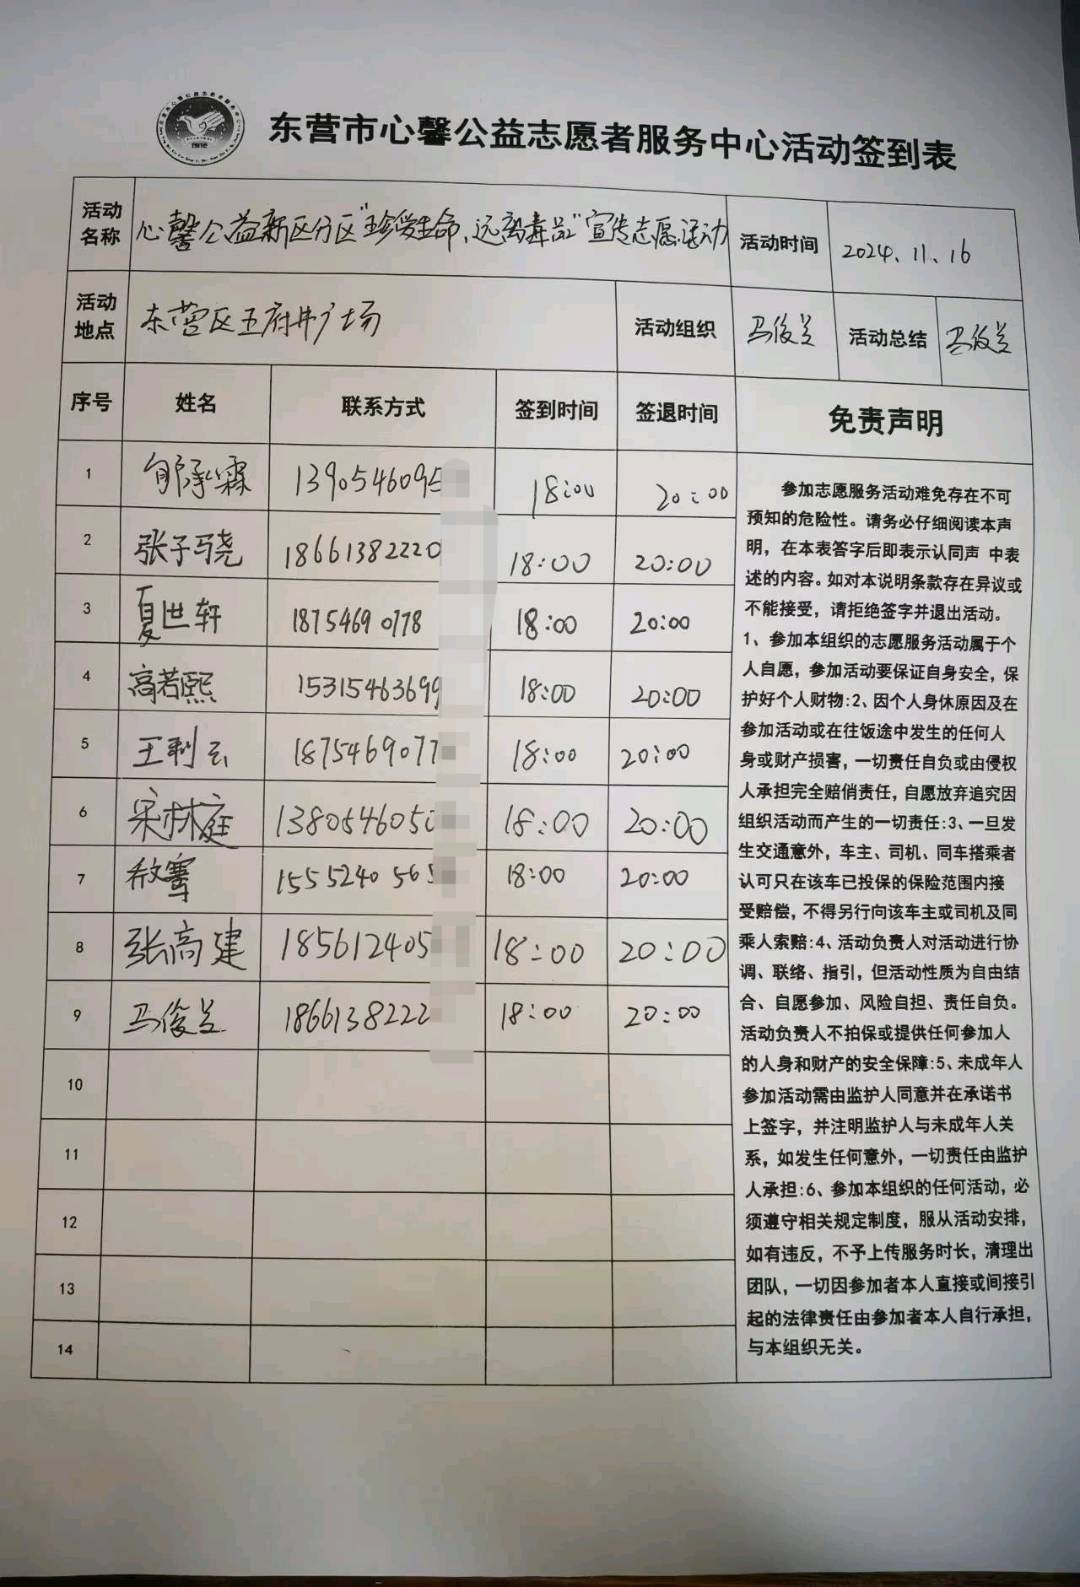 东营市心馨公益志愿者服务中心活动签到表
活动名称 心馨公益新区分区"珍爱生命、远离毒品"宣传志愿活动 活动时间 2024.11.16
活动地点 东营区五府井广场 活动组织 马俊兰 活动总结 马俊兰
序号 姓名 联系方式 签到时间 签退时间 免责声明
1 郇承霖 1390546095 18:00 20:00
2 张子骁 18661382220 18:00 20:00
3 夏世轩 18754690778 18:00 20:00
4 高若熙 15315463699 18:00 20:00
5 王利云 1875469077 18:00 20:00
6 宋林庭 138054605 18:00 20:00
7 1555240565 18:00 20:00
8 张高建 185612405 18:00 20:00
9 马俊兰 1866138222 18:00 20:00
10
11
12
13
14
参加志愿服务活动难免存在不可
预知的危险性。请务必仔细阅读本声
明，在本表答字后即表示认同声 中表
述的内容。如对本说明条款存在异议或
不能接受，请拒绝签字并退出活动。
1、参加本组织的志愿服务活动属于个
人自愿，参加活动要保证自身安全，保
护好个人财物:2、因个人身休原因及在
参加活动或在往饭途中发生的任何人
身或财产损害，一切责任自负或由侵权
人承担完全赔俏责任，自愿放弃追究因
组织活动而产生的一切责任:3、一旦发
生交通意外，车主、司机、同车搭乘者
认可只在该车已投保的保险范围内接
受赔偿，不得另行向该车主或司机及同
乘人索赔:4、活动负责人对活动进行协
调、联络、指引，但活动性质为自由结
合、自愿参加、风险自担、责任自负。
活动负责人不拍保或提供任何参加人
的人身和财产的安全保障:5、未成年人
参加活动需由监护人同意并在承诺书
上签字，并注明监护人与未成年人关
系，如发生任何意外，一切责任由监护
人承担:6、参加本组织的任何活动，必
须遵守相关规定制度，服从活动安排，
如有违反，不予上传服务时长，清理出
团队，一切因参加者本人直接或间接引
起的法律责任由参加者本人自行承担，
与本组织无关。